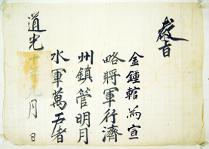 教旨
金鍾轄爲宣
略將軍行濟
州鎮管明月
水軍萬戶者
道光十 年 月 日